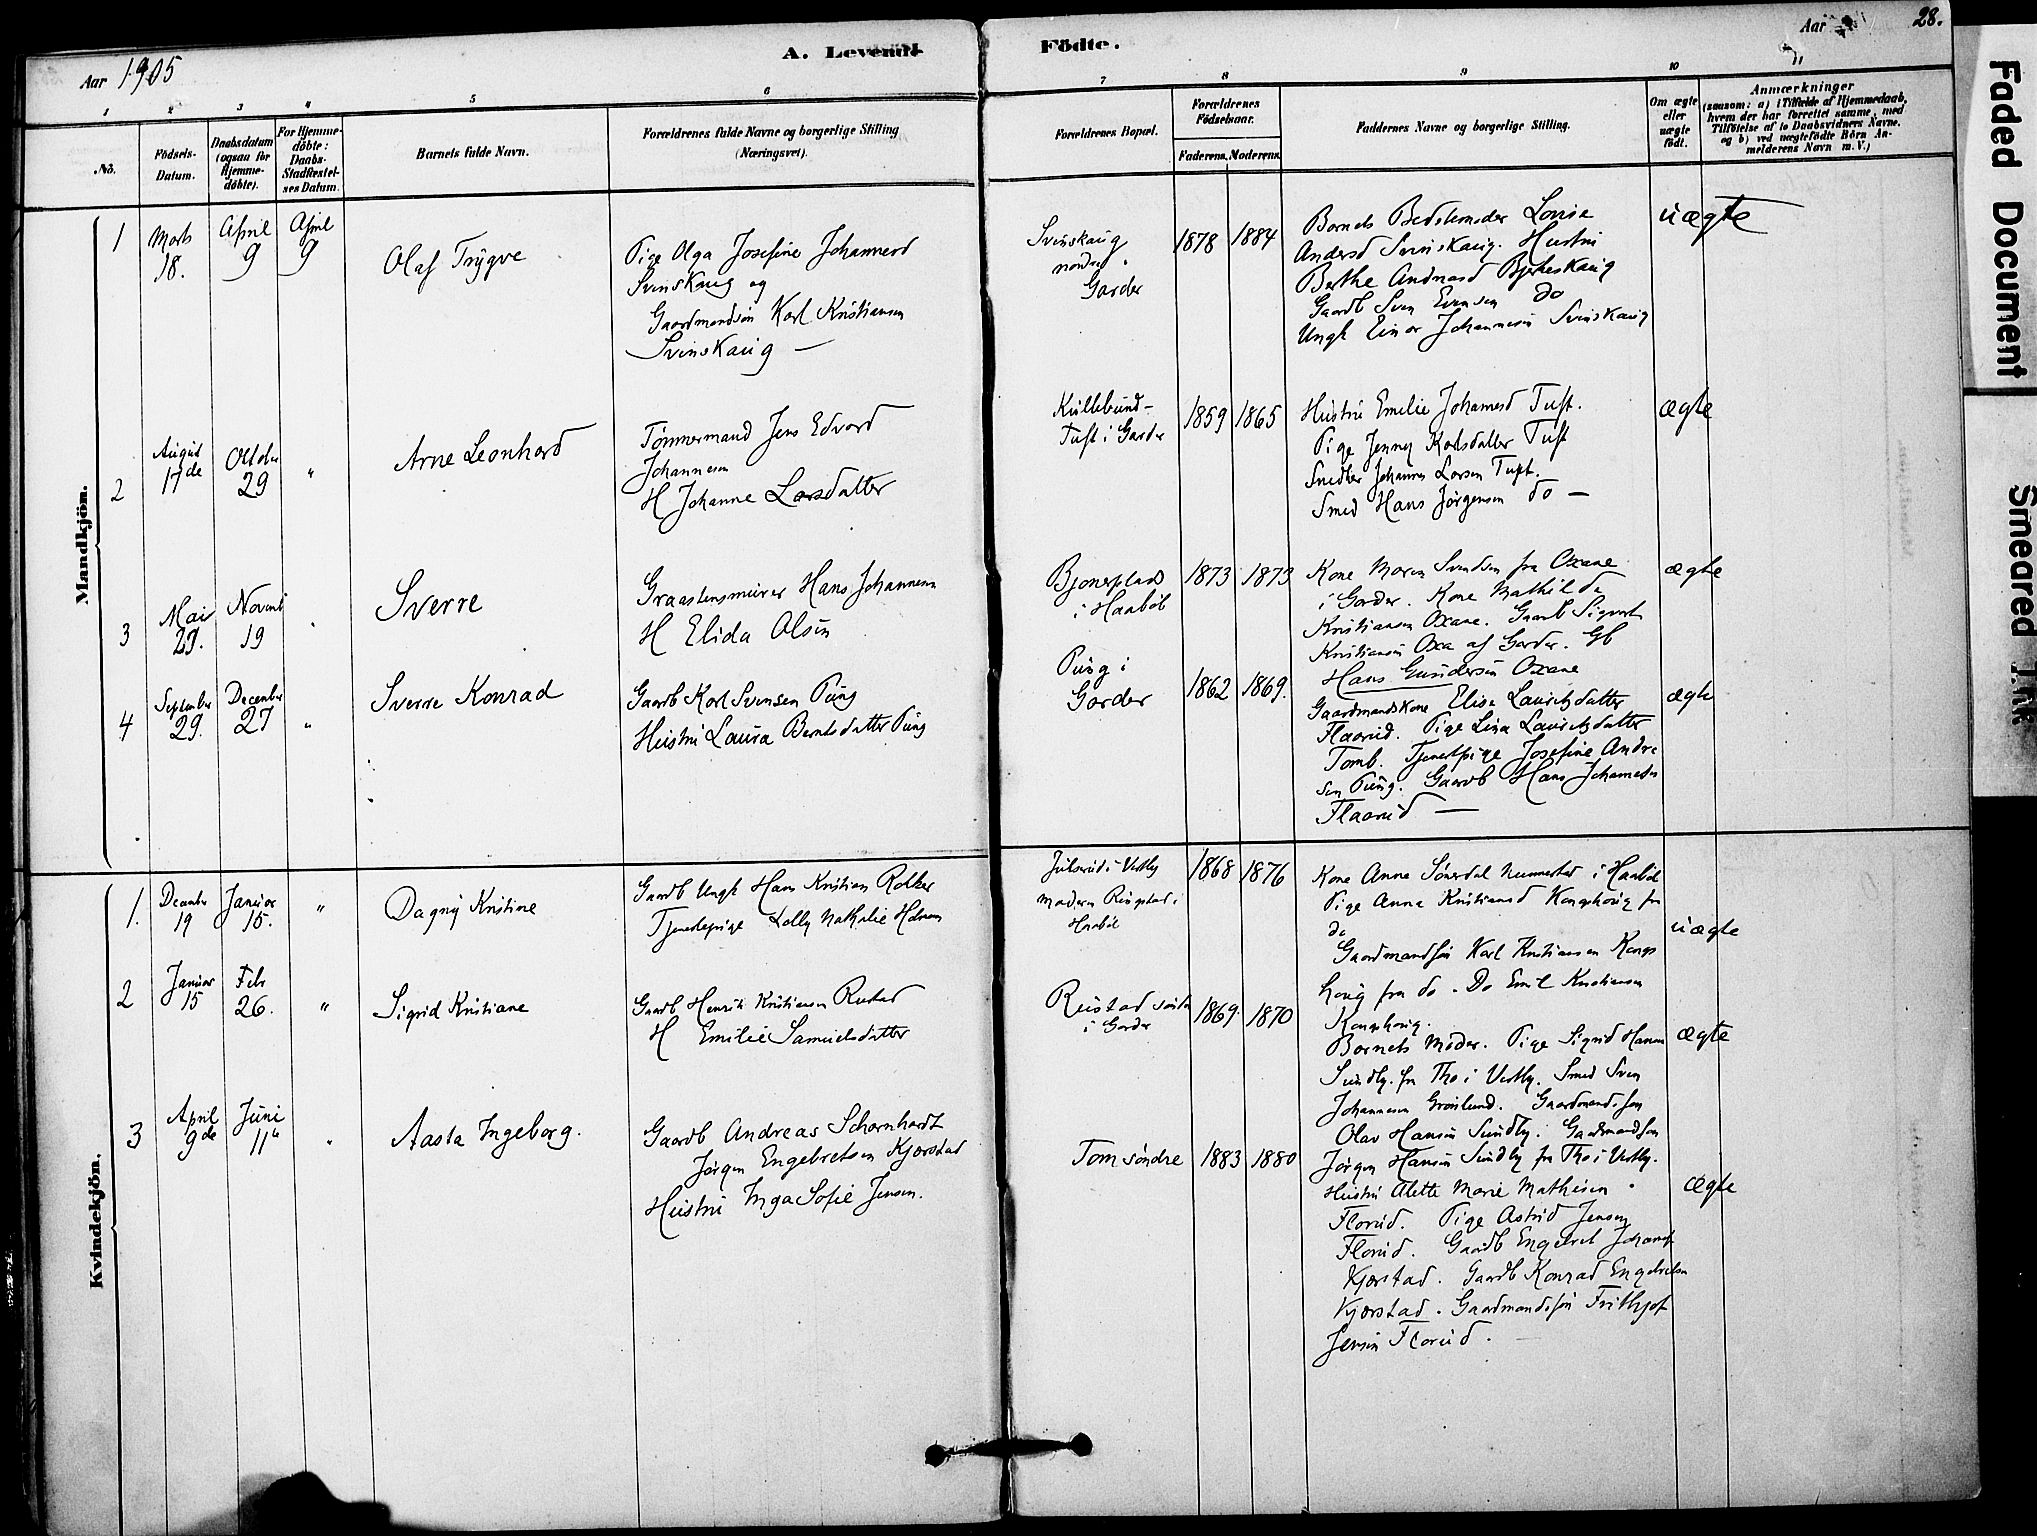 Aar 1905
A. Levendt
Födte.
Aar
28.
1 2 3 4 5 6 7 8 9 10 11
No.
Födsels-
Datum.
Daabsdatum
(ogsaa for
Hjemme-
döbte).
For Hjemme-
döbte:
Daabs-
Stadfæstel-
ses Datum.
Barnets fulde Navn.
Forældrenes fulde Navne og borgerlige Stilling
(Næringsvei).
Forældrenes Bopæl.
Forældrenes
Födselsaar.
Faderens. Moderens.
Faddernes Navne og borgerlige Stilling.
Om ægte
eller
uægte
födt.
Anmærkninger
(saasom: a) i Tilfælde af Hjemmedaab,
hvem der har forrettet samme, med
Tilföielse af to Daabsvidners Navne.
og b) ved uægtefödte Börn An-
melderens Navn m.V.)
Mandkjön.
1
Marts
18.
April
9
April
9
Olaf Trygve
Pige Olga Josefine Johannesd
Svinskaug og
Gaardmandsön Karl Kristiansen
Svinskaug —
Svinskaug
nordre
Garder
1878 1884
Barnets Bedstemoder Lovise
Andersd Svinskaug. Hustru
Berthe Andreasd Bjerkeskaug
Gaardb Sven Evensen do
Ungk Einar Johannesen Svinskaug
uægte
2
August
17de
October
29
"
Arne Leonhard
Tömmermand Jens Edvard
Johannesen
H Johanne Larsdatter
Kullebund-
Tuft i Garder
1859 1865
Hustru Emilie Johannesd Tuft.
Pige Jenny Karlsdatter Tuft
Snedker Johannes Larsen Tuft.
Smed Hans Jörgensen do —
ægte
3
Mai
29.
Novemb
19
Sverre
Graastensmurer Hans Johannesen
H Elida Olsen
Bjonerplads
i Haaböl
1873 1873
Kone Maren Svendsen fra Oxane
i Garder. Kone Mathilde
Kristiansen Oxane. Gaardb Sigvart
Kristiansen Oxa af Garder. Gb
Hans Gundersen Oxane
ægte
4
September
29.
December
27
"
Sverre Konrad
Gaardb Karl Svensen Pung
Hustru Laura Berntsdatter Pung
Pung i
Garder
1862 1869.
Gaardmandskone Elise Lauritzdatter
Flaarud. Pige Lina Lauritzdatter
Tomb. Tjenestpige Josefine Andre
sen Pung. Gaardb Hans Johannesen
Flaarud —
ægte
Kvindekjön.
1.
December
19
Januar
15.
"
Dagny Kristine
Gaardb Ungk Hans Kristian
Tjenestepige Lolly Nathalie
Julsrud i Vestby
Moderen Ringstad i
Haaböl
1868 1876
Kone Anna i Haaböl
Pige Anna Kristiansd Kongshaug fra
do
Gaardmandsön Karl Kristiansen Kongs
haug fra do. Do Emil Kristiansen
Kongshaug.
uægte
2
Januar
15
Febr
26.
"
Sigrid Kristiane
Gaardb Henrik Kristiansen Rustad
H Emilie Samuelsdatter
Rustad söndre
i Garder
1869. 1870
Barnets Moder. Pige Sigrid Hansen
Sundby fra Tho i Vestby. Smed Sven
Johannesen Gröslund. Gaardmandsön
Olav Hansen Sundby. Gaardmandsön
Jörgen Hansen Sundby fra Tho i Vestby.
ægte
3
April
9de
Juni
11te
"
Aasta Ingeborg.
Gaardb Andreas Scharnhardt
Jörgen Engebretsen Kjærstad
Hustru Inga Sofie Jensen.
Tom söndre
1883 1880
Hustru Alette Marie Mathisen
Florud. Pige Astrid Jensen
Florud. Gaardb Engebret Johans
Kjærstad. Gaardb Konrad Engebretsen
Kjærstad. Gaardmandsön Frithjof
Jensen Florud.
ægte
Faded Document
Smeared Ink